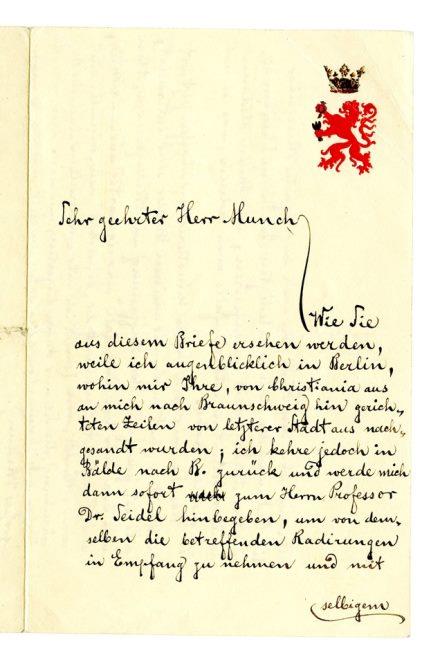 Sehr geehrter Herr Munch,
Wie Sie
aus diesem Briefe ersehen werden,
weile ich augenblicklich in Berlin,
wohin mir Ihre, von Christiania aus
an mich nach Braunschweig hin gerich-
teten Zeilen von letzterer Stadt aus nach-
gesandt wurden; ich kehre jedoch in
Bälde nach B. zurück und werde mich
dann sofort zum Herrn Professor
Dr. Seidel hinbegeben, um von dem-
selben die betreffenden Radirungen
in Empfang zu nehmen und mit
selbigem